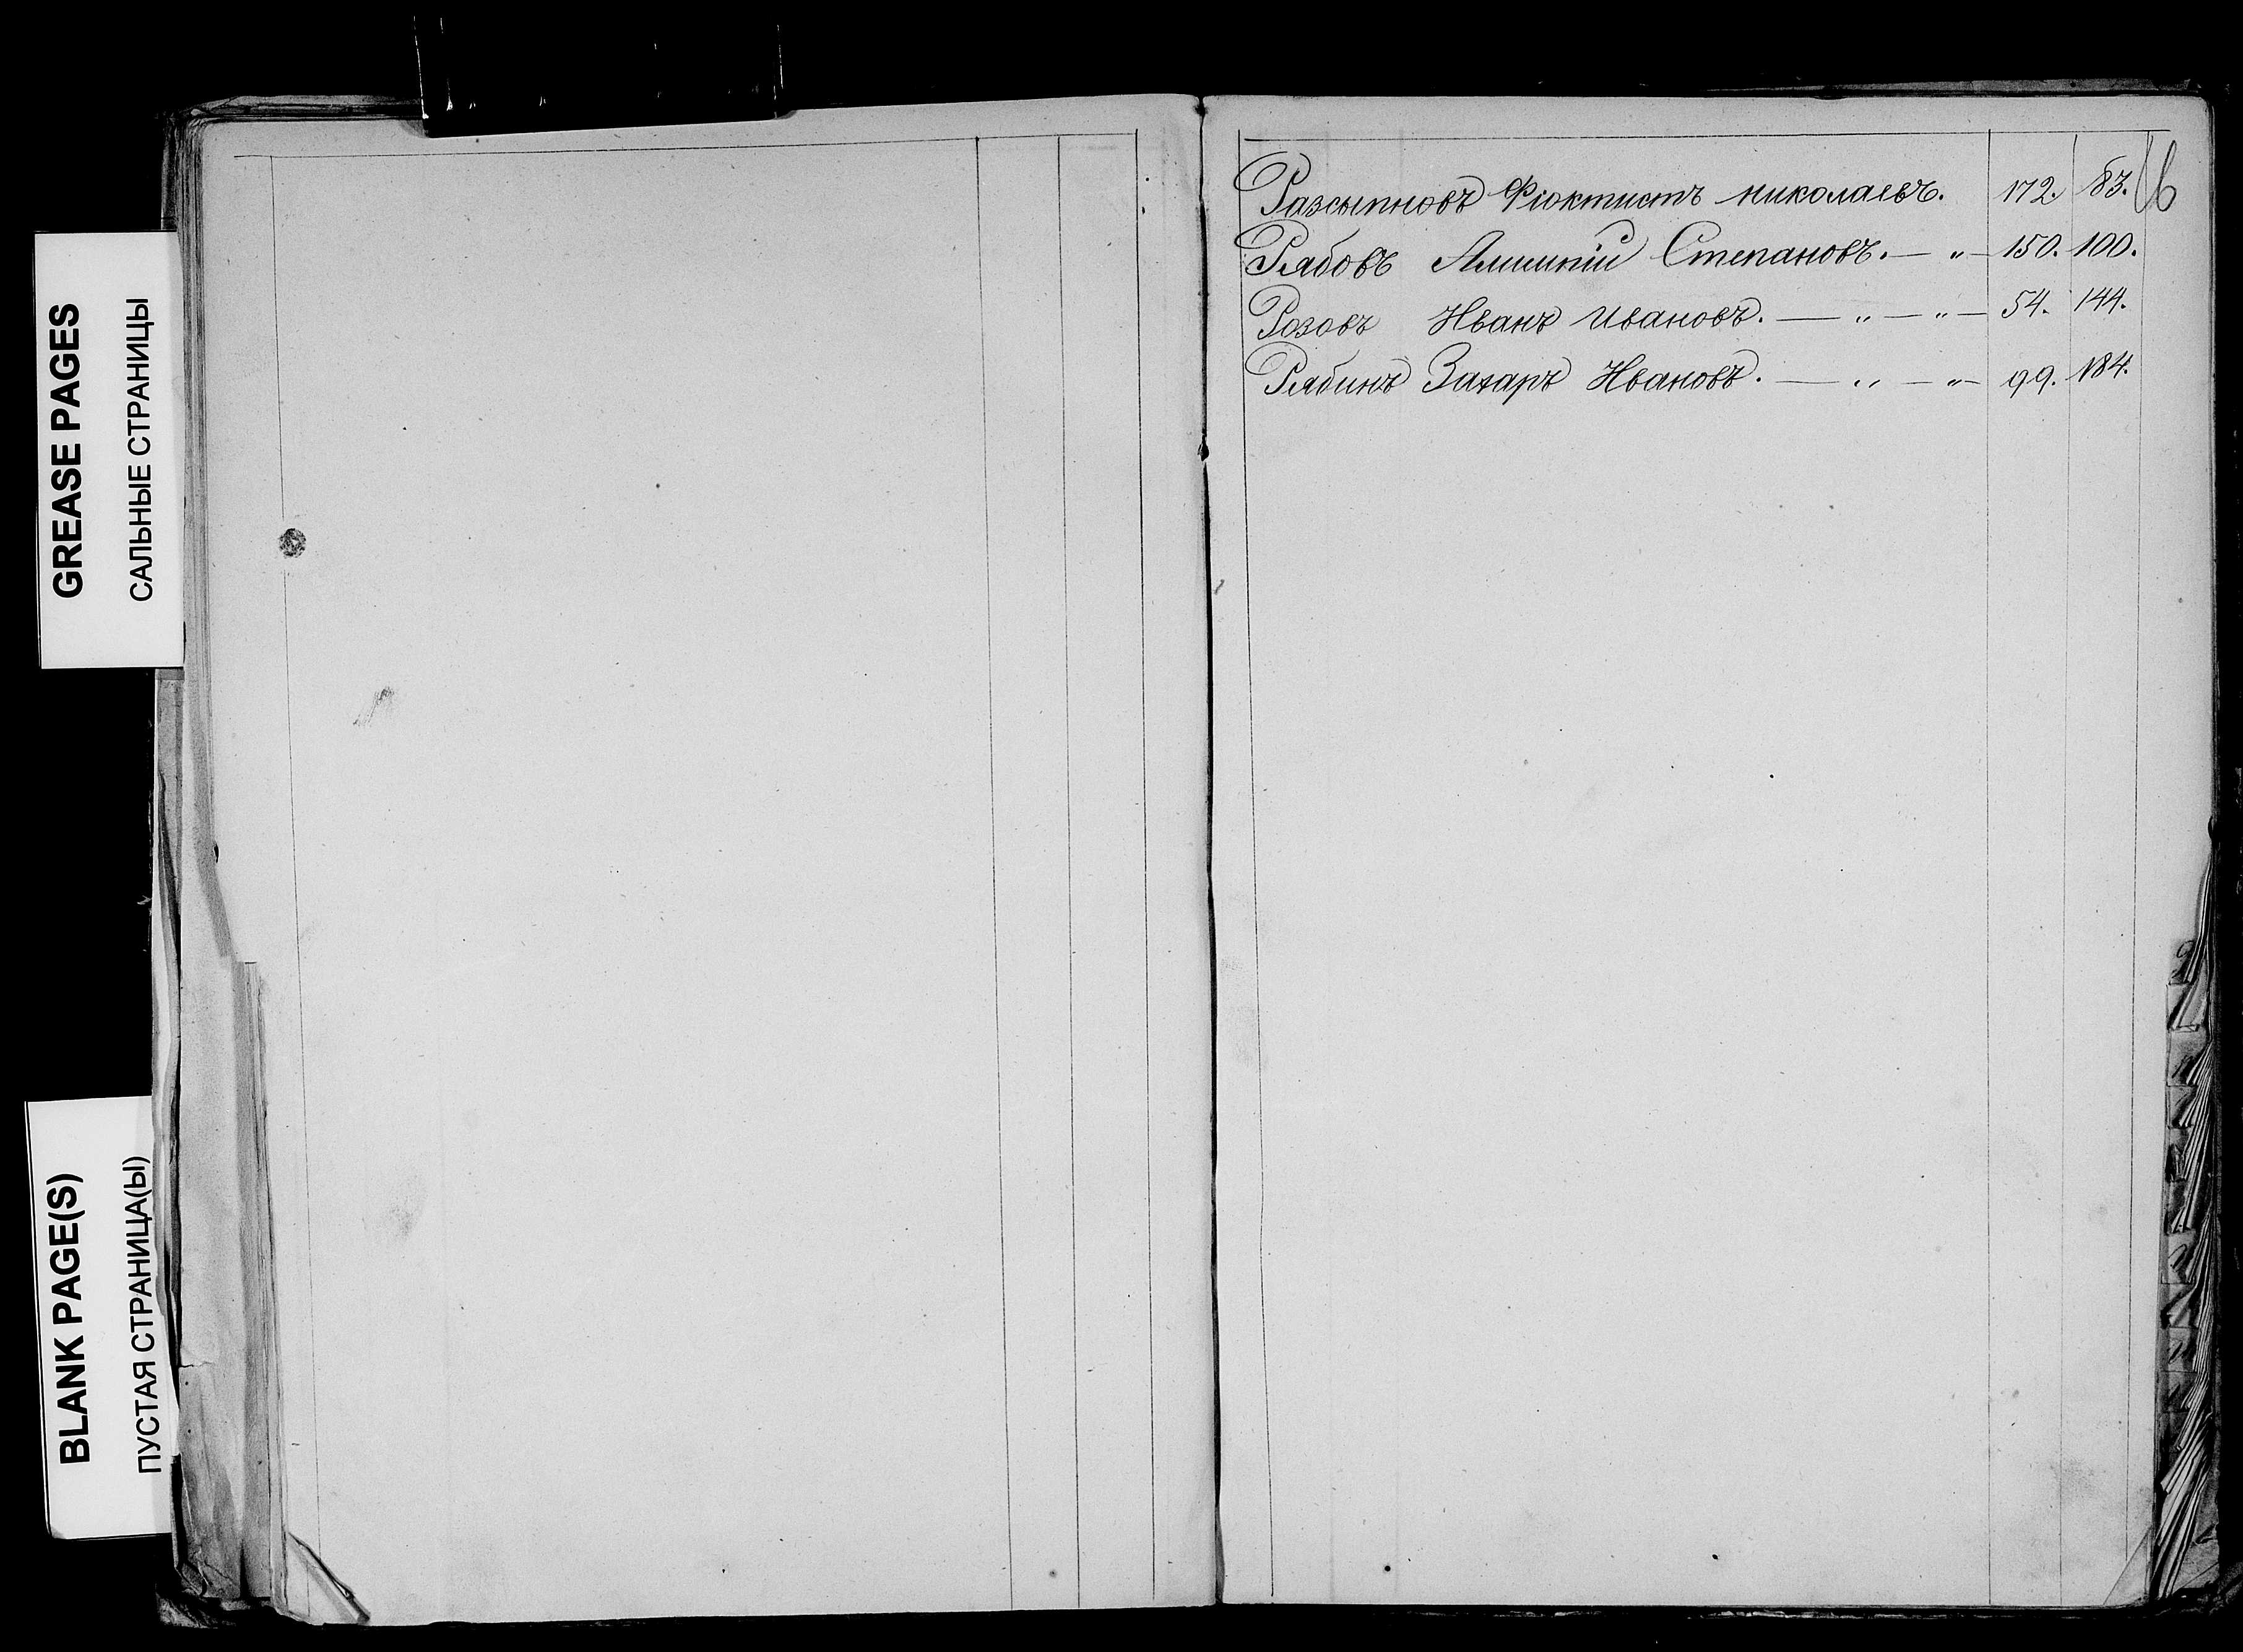 GREASE PAGES
САЛЬНЫЕ СТРАНИЦЫ
BLANK PAGE(S)
ПУСТАЯ СТРАНИЦА(Ы)
Разсыпновъ Фіоктистъ Николаевъ. 172. 83.
Рябовъ Степановъ. — „ — 150. 100.
Розовъ Иванъ Ивановъ. — „ — „ — 54. 144.
Рябинъ Захаръ Ивановъ. — „ — „ — 99. 184.